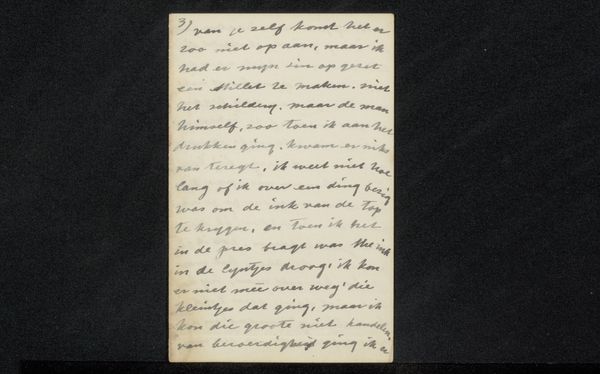 3) van je zelf komt het er
zoo niet op aan, maar ik
had er mijn zin op gezet
een Millet te maken. niet
het schildery. maar de man
himself, zoo toen ik aan het
drukken ging. kwam er niks
van teregt, ik weet niet hoe
lang of ik over een ding bezig
was om de ink van de top
te krygen, en toen ik het
in de pres bragt was the ink
in de lyntjes droog, ik kon
er niet mee over weg' die
kleintjes dat ging, maar ik
kon die groote niet handelen,
van beroerdigheid ging ik er